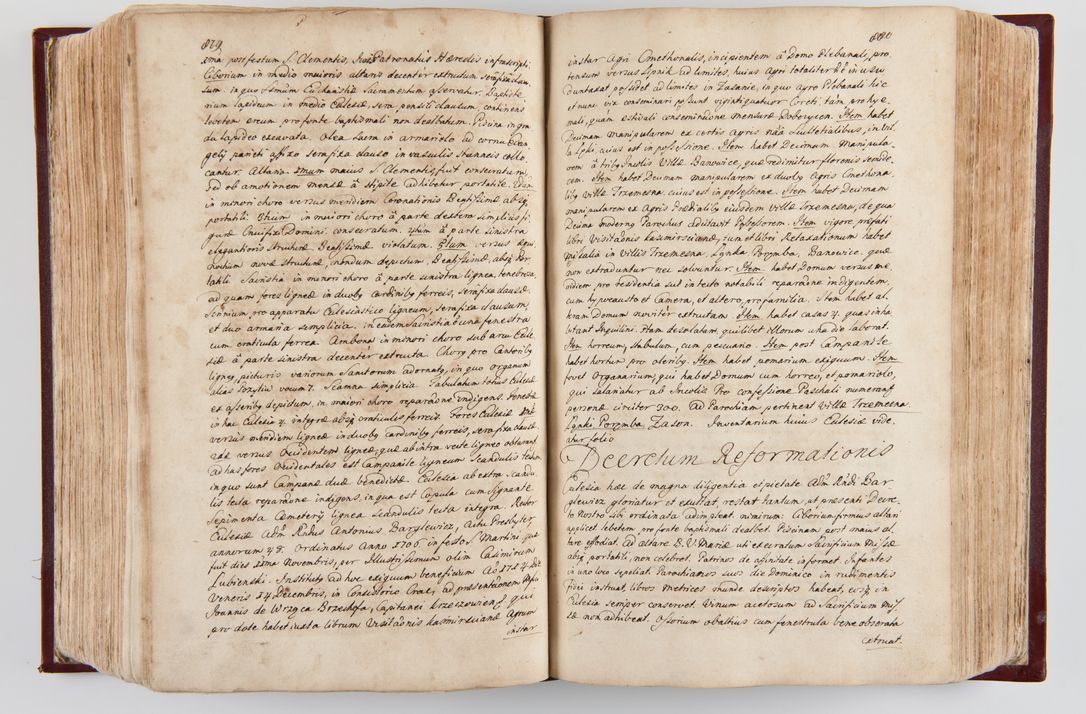 879
ima profestum S. Clementis, Juris Patronatus Hæredis infrascripti
Ciborium in medio maioris altaris decenter extructum serâ fixâ clau,
sum, in quo SSmum Eucharistiæ Sacramentum asservatur. Baptiste,
rium lapideum in medio Ecclesiæ, sera pensili clausum, continens
lebetem æreum pro fonte baptismali non dealbatum. Piscina in gra,
du lapideo excavata. Olea Sacra in armariolo ad cornu Evan,
gelij parieti affixo sera fixa clauso in vasculis stanneis collo,
cantur. Altaria. 1mum maius S. Clementis, fuit consecratum,
sed ob amotionem mensæ â stipite adhibetur portatile. 2dum
in minori choro versus meridiem Coronationis Beatissimæ absq
portatili. 3tium in maiori choro â parte dextera simplicis fi,
guræ Crucifixi Domini consecratum. 4tum â parte sinistra
elegantioris structuræ Beatissimæ violatum. 5tum versus
chorum novæ structuræ, nondum depictum, Beatissimæ, absq Por,
tatili. Sacristia in minori choro â parte sinistra lignea, tenebrosa,
ad quam fores ligneæ in duobq Cardinibq ferreis, sera fixa clausæ.
Scrinium, pro apparatu Ecclesiastico ligneum, sera fixa clausum,
et duo armaria simplicia. in eadem Sacristia una fenestra
cum craticula ferrea. Ambona in minori choro sub arcu Eccle,
siæ â parte sinistra decenter extructa. Chorq pro Cantoribq
ligneq, picturis variorum Sanctorum adornatq, in quo Organum
alias Pozytiw vocum 7. Scamna simplicia. Tabulatum totius Ecclesiæ
ex asseribq depictum, in maiori choro reparaõne indigens. Fenestræ
in hac Ecclesia 7. integræ absq craticulis ferreis. Fores Ecclesiæ 1mæ
versus meridiem ligneæ in duobq Cardinibq ferreis, sera fixa clausæ
2dæ versus Occidentem ligneæ, quæ ab intra vecte ligneo obturant
ad has fores Occidentales est Campanile ligneum Scandulis tectum
in quo sunt Campanæ duæ benedictæ. Ecclesia ab extra Scandu,
lis tecta reparaõne indigens, in qua est Copula cum Signante
Sepimenta Cemeterij lignea Scandulis tecta integra. Rector
Ecclesiæ Adm̃ Rndus Antonius Barglewicz, Actu Presbyter
annorum 45. Ordinatus Anno 1706 in festo S. Martini, quæ
fuit dies 11ma Novembris, per Illustrissimum olim Casimirum
Łubienski. Institutq ad hoc exiguum beneficium Aõ 1714 die
Veneris 14 Decembris, in Consistorio Crac, ad præsentaõnem Mfci
Joannis de Wrzęca Brzechffa, Capitanei Krzeczoviens, qui
pro dote habet iuxta librum Visitaõnis kasimirscianæ Agrum
instar
880
instar Agri Cmethonalis, incipientem â Domo Plebanali, pro,
tensum versus Lipnik ad limites, huius Agri totaliter in usu
duntaxat possidet ad limites in Zasanie, in quo agro Plebanali hic
et nunc vix conseminari possunt viginti quatuor Coreti, tam pro hye,
mali, quam æstivali conseminatione mensuræ Dobczycen. Item habet
Decimam manipularem ex certis agris Scultetialibus, in vil,
la Lęki, cuius est in possessione. Item habet Decimam manipula,
rem â tribq Incolis Villæ Banowice, quæ redimitur florenis sede,
cem. Item habet Decimam manipularem ex duobq Agris Cmethona,
libq villæ Trzemesna, cuius est in possessione. Item habet Decimam
manipularem ex Agris Prædialibq eiusdem villæ Trzemesna, de qua
Decima modernq Parochus adcitavit Possessorem. Item vigore præfati
libri Visitaõnis kasimirscianæ, tum et libri Retaxationum habet
missalia in Villis Trzemesna, Łęnka, Poręmba, Banowice, quæ
non extraduntur neu solvuntur. Item habet Domum versus me,
ridiem pro residentia sub in tecto notabili reparaõne indigentem,
cum hypocausto et Camera, et altero pro familia. Item habet al,
teram Domum noviter extructam. Item habet casas 4. quas inha,
bitant Inquilini. Item desolatam, quilibet illorum una die laborat.
Item horreum, stabulum, cum pecuario. Item post Campanile
habet hortum pro oleribq. Item habet pomarium exiguum. Item
fovet Organarium, qui habet Domum cum horreo, et pomariolo,
qui salariatur ab Incolis. Pro confessione Paschali numerant
personæ circiter 900. Ad Parochiam pertinent villæ Trzemesna,
Łęnki, Poręmba, Zason. Inventarium huius Ecclesiæ vide,
atur folio
Decretum Reformationis
Ecclesia hæc de magna diligentia et pietate Adm̃ Rndi Bar,
glewicz gloriatur et exultat, restat tantum, ut præsenti Decre,
to Nostro sibi ordinata adimpleat nimirum: Ciborium firmius altari
applicet lebetem pro fonte baptismali dealbet. Piscinam post maius al,
tare effodiat. Ad altare B. V. Mariæ uti execratum Sacrificium Missæ
absq portatili, non celebret. Patrinos de affinitate informet. Infantes
in uno loco sepeliat. Parochianos suos die Dominico in rudimentis
Fidei instruat, libros metrices munde descriptos habeat, eosq in
Ecclesia semper conservet. Vinum acetosum ad Sacrificium Mis,
sæ non adhibeat. Ossorium obaltius cum fenestrula bene obserata
extruat.